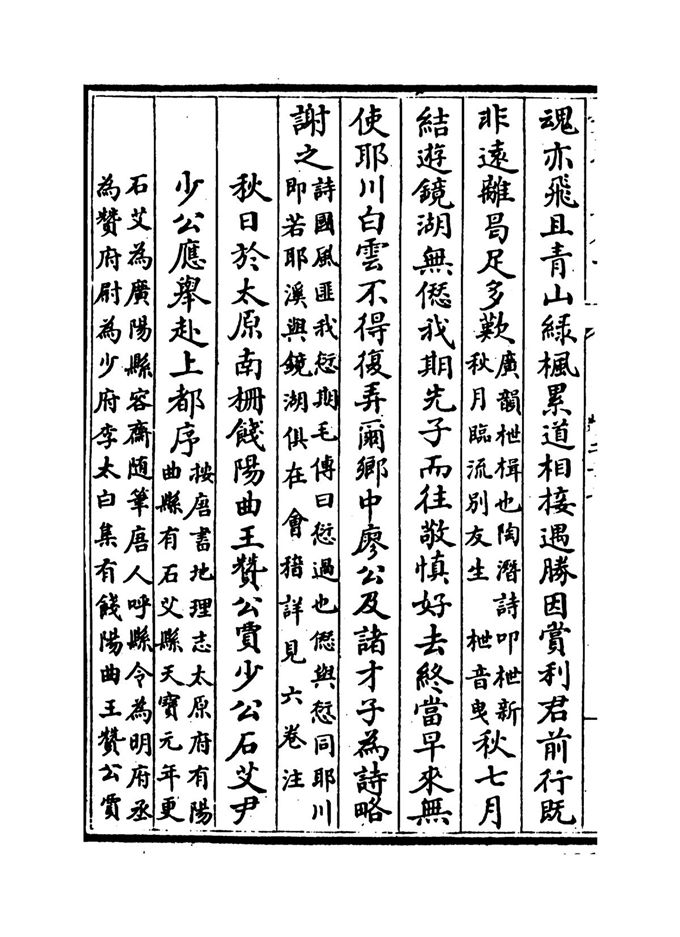 魂亦飛且青山綠楓累道相接遇勝因賞利君前行既
非遠離曷足多歎廣韻枻楫也陶潛詩叩枻新秋月臨流別友生 枻音曳秋七月
結遊鏡湖無愆我期先子而往敬慎好去終當早來無
使耶川白雲不得復弄爾鄉中廖公及諸才子為詩略
謝之詩國風匪我愆期毛傳曰愆過也僁與愆同耶川即若耶溪與鏡湖俱在會稽詳見六卷注
秋日於太原南柵餞陽曲王贊公賈少公石艾尹
少公應舉赴上都序按唐書地理志太原府有陽曲縣有石艾縣天寶元年更
石艾為廣陽縣容齋隨筆唐人呼縣令為明府丞為贊府尉為少府李太白集有餞陽曲王贊公賈